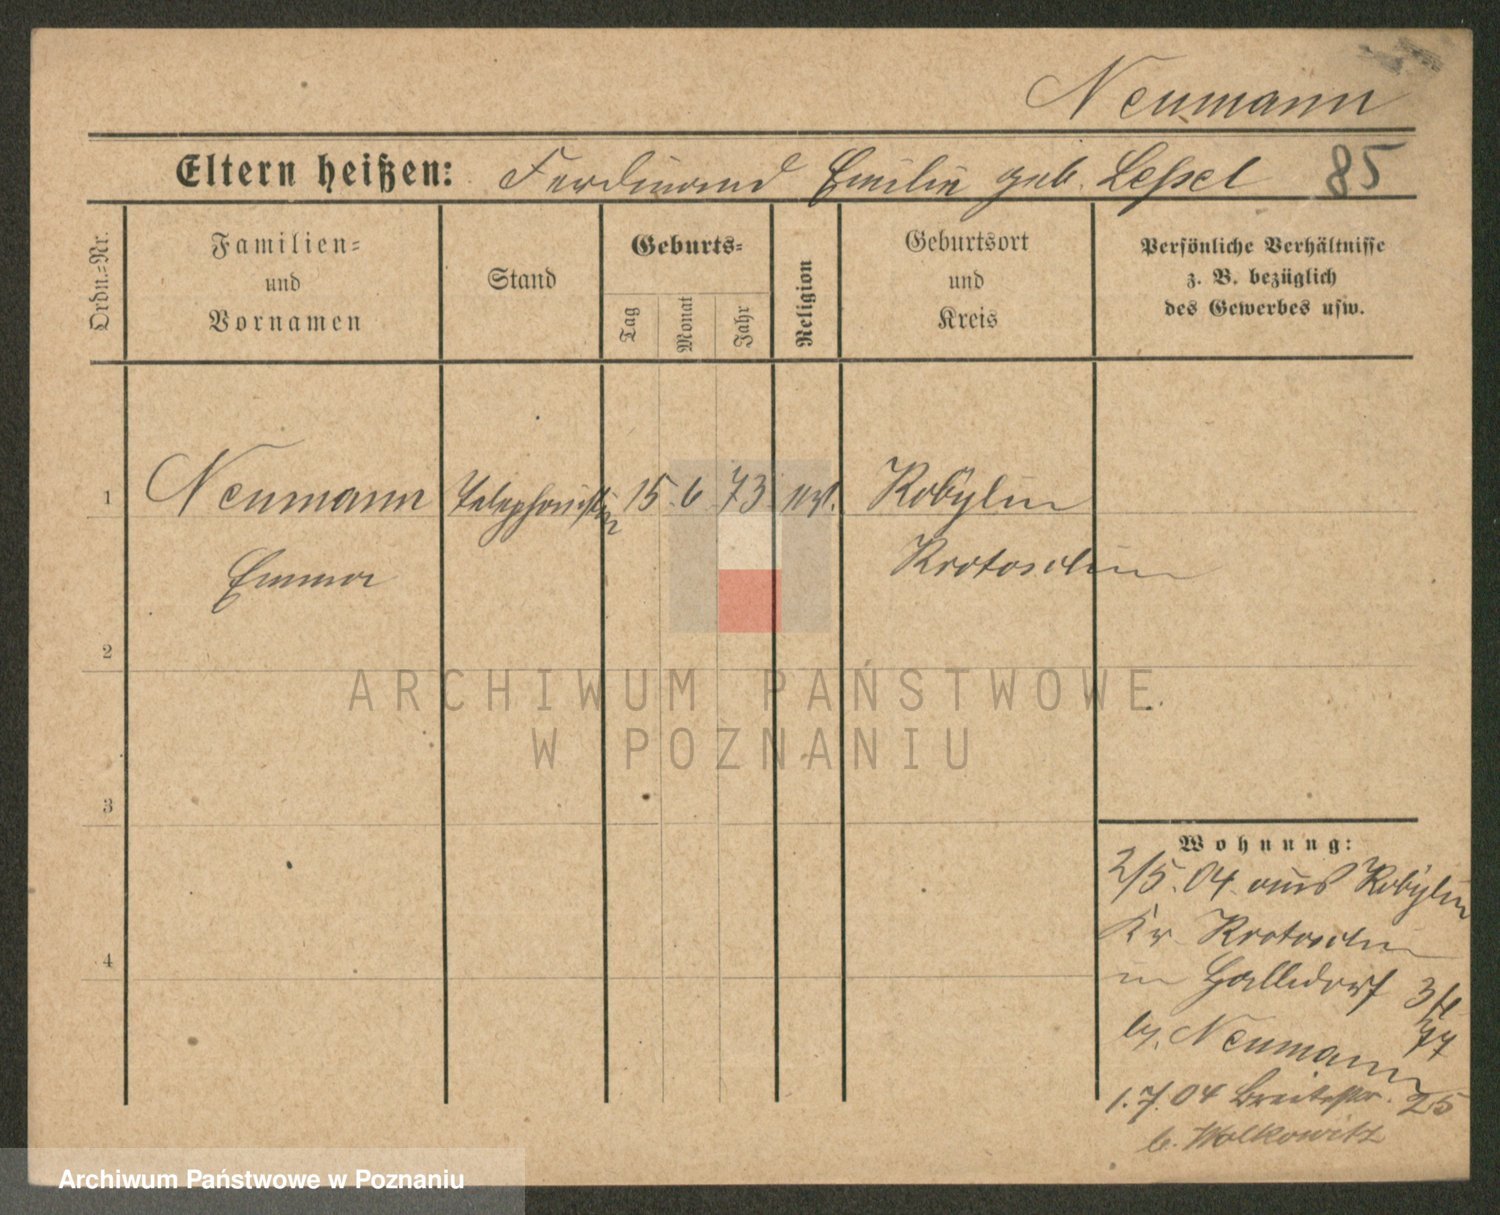 Neumann
Eltern heißen: Ferdinand Emilie geb. Leßel 85
Ordn.=Nr.
Familien=
und
Vornamen
Stand
Geburts=
Tag
Monat
Jahr
Religion
Geburtsort
und
Kreis
Persönliche Verhältnisse
z. B. bezüglich
des Gewerbes usw.
1 Neumann Telephonistin 15. 6 73. Kobylin
Emma Krotoschin
2
3
4
ARCHIWUM PAŃSTWOWE
W POZNANIU
Wohnung:
2/5. 04. aus Kobylin
Kr. Krotoschin
in
Neumann
1. 7. 04 Breitestr. 25
b. Wolkowitz
Archiwum Państwowe w Poznaniu